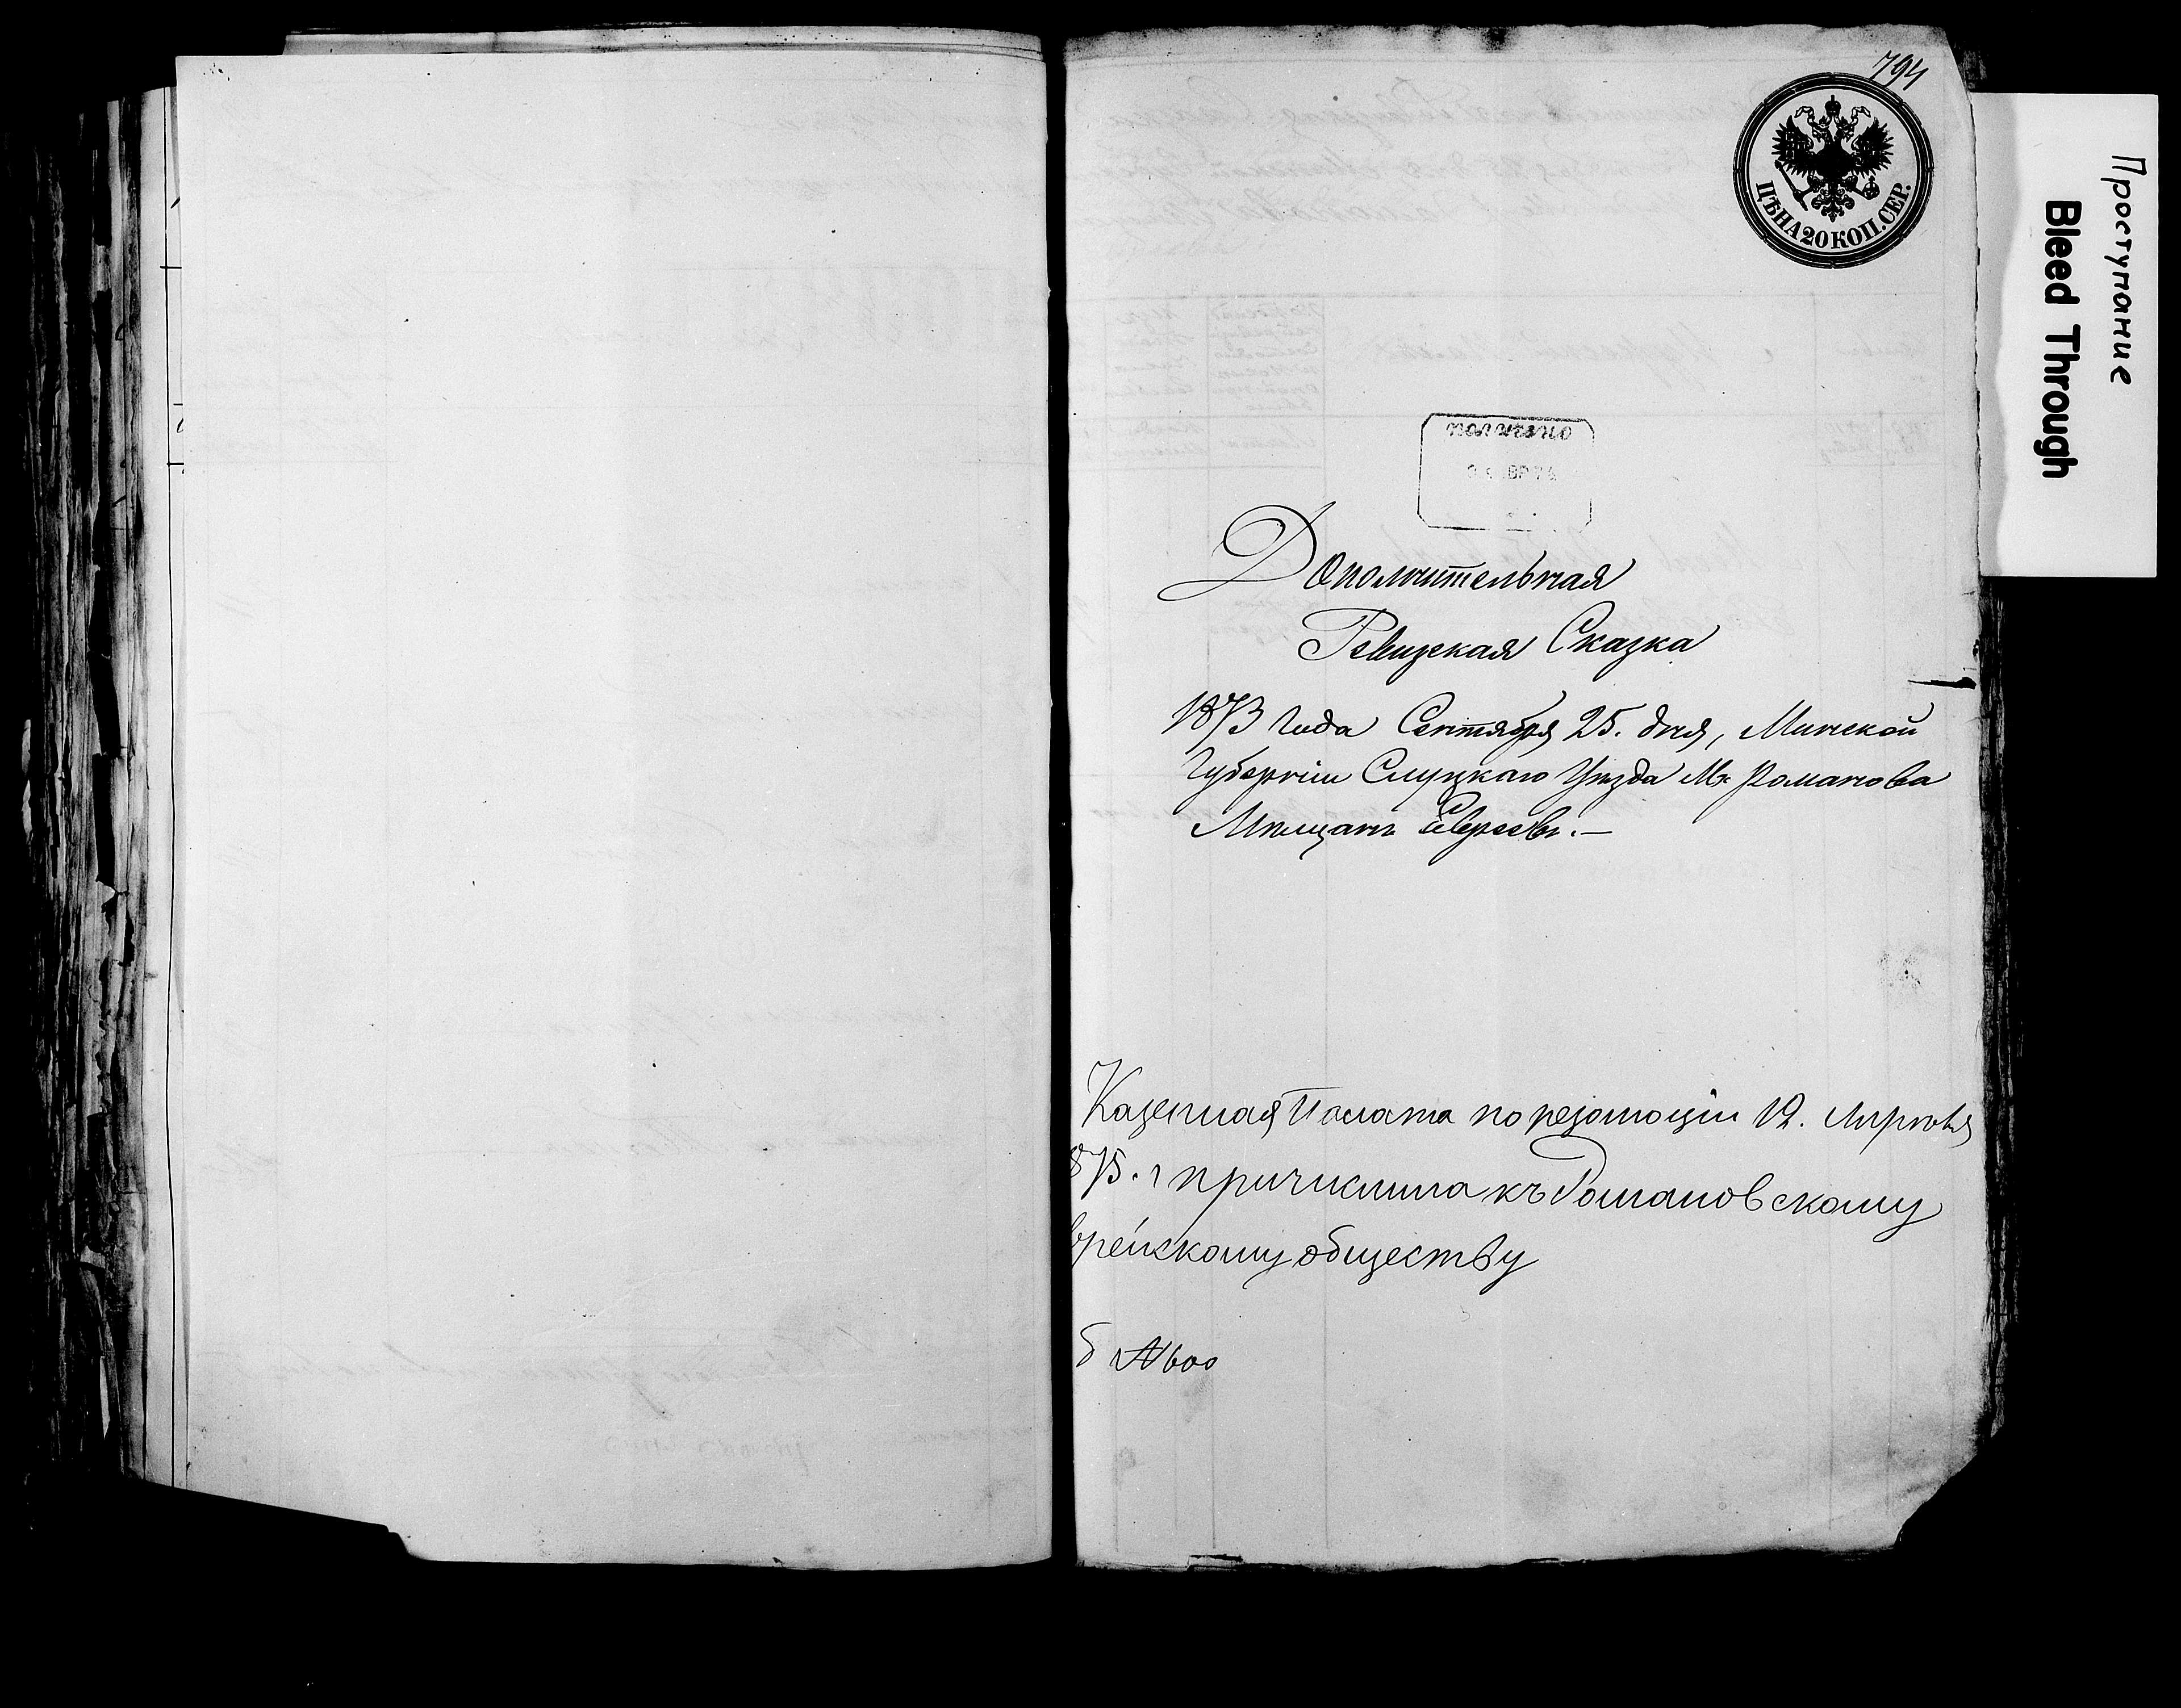 794
ЦѢНА 20 КОП. СЕР.
Проступание
Bleed Through
получено
Дополнительная
Ревизская Сказка
1873 Года Сентября 25. дня, Минской
Губерніи Слуцкаго Уѣзда М. Романова
Мѣщанъ Евреевъ.—
Казенная Палата по резолюціи 12.
875. г причислила къ Романовскому
врейскому обществу
б № 600